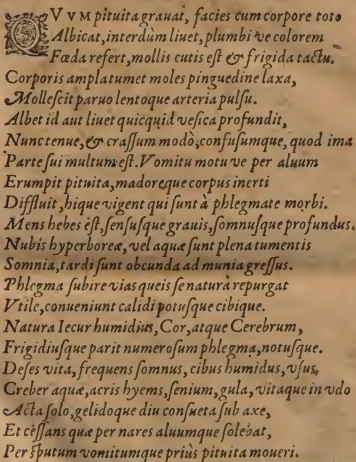 QVVM pituita grauat, facies cum corpore toto
Albicat, interdùm liuet, plumbi ve colorem
Fœda refert, mollis cutis est & frigida tactu.
Corporis amplatumet moles pinguedine laxa,
Mollescit paruo lentoque arteria pulsu.
Albet id aut liuet quicquid vesica profundit,
Nunc tenue, & crassum modò, confusumque, quod ima
Parte sui multum est. Vomitu motu ve per aluum
Erumpit pituita, madoreque corpus inerti
Diffluit, hique vigent qui sunt à phlegmate morbi.
Mens hebes est, sensusque grauis, somnusque profundus.
Nubis hyperboreæ, vel aquæ sunt plena tumentis
Somnia, tardi sunt obcunda ad munia gressus.
Phlegma subire vias queis se natura repurgat
Vtile, conueniunt calidi potusque cibique.
Natura Iecur humidius, Cor, atque Cerebrum,
Frigidiusque parit numerosum phlegma, notusque.
Deses vita, frequens somnus, cibus humidus, vsus
Creber aquæ, acris hyems, senium, gula, vitaque in vdo
Acta solo, gelidoque diu consueta sub axe,
Et cèssans quæ per nares aluumque solebat,
Per sputum vomitumque priùs pituita moueri.